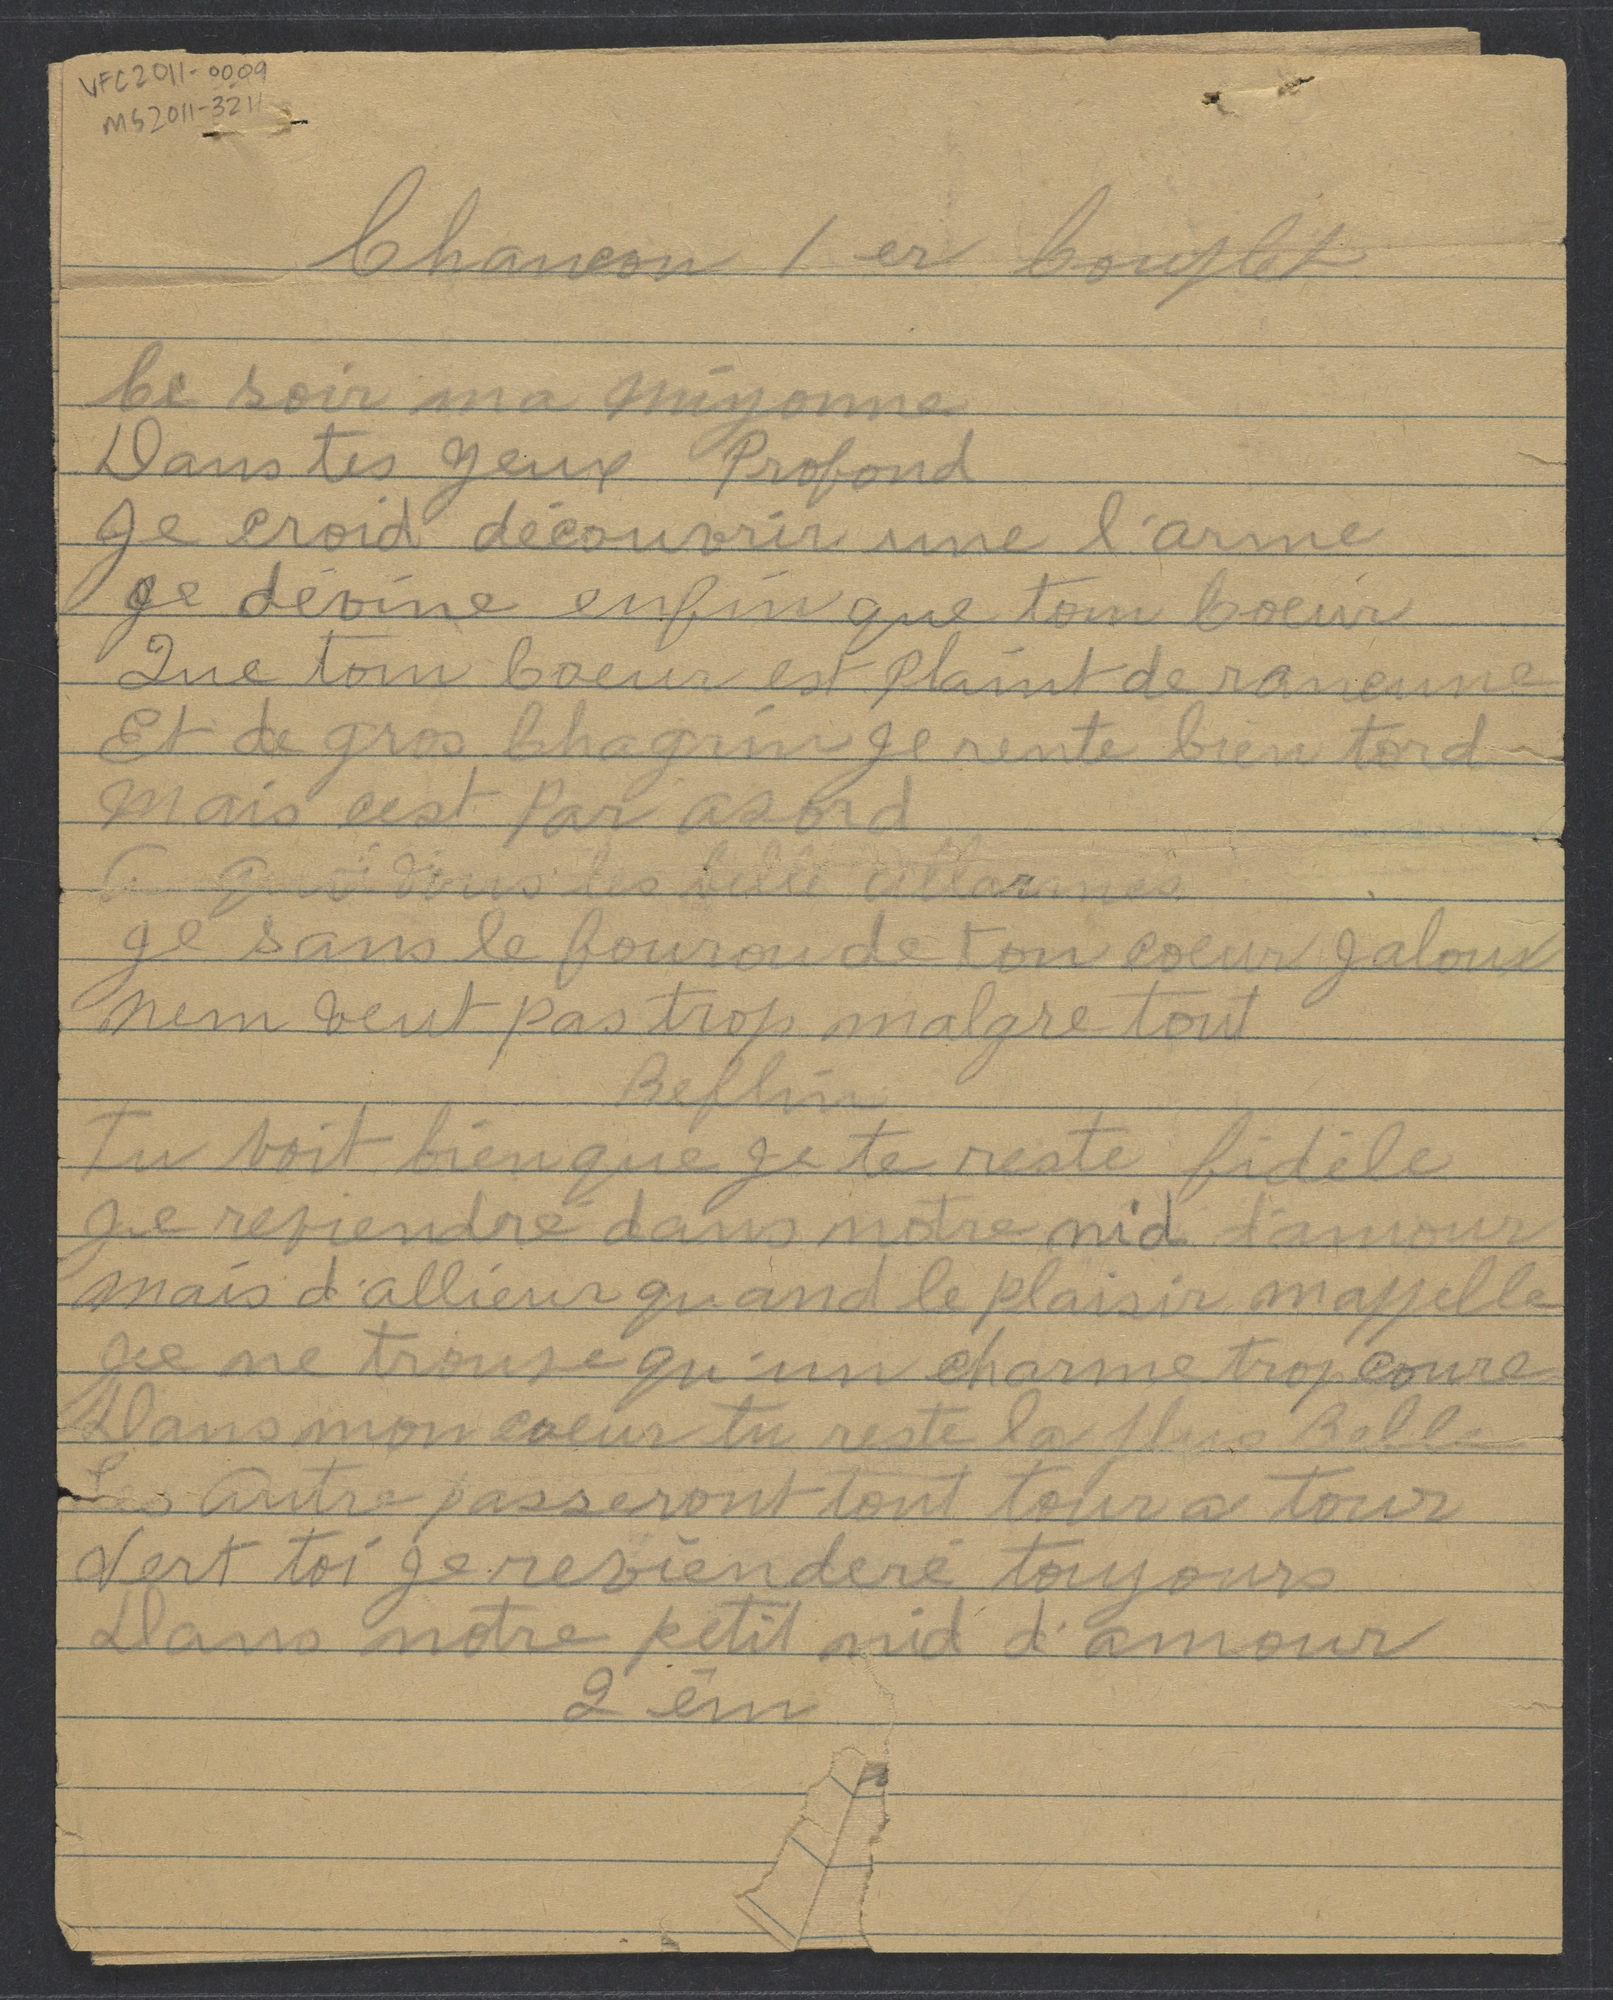 VFC2011-0009
MS2011-3211
Chancon 1 er Couplet
Ce soir ma miyonne
Dans tes yeux Profond
Je croid découvrir une l'arme
Je dévine enfin que tom Coeur
Que tom Coeur est Plaint de rancune
Et de gros Chagrin Je rente bien tord
Mais cest Par asord
les belle allarmes
Je sans le fourou de ton coeur Jaloux
Nem veut pas trop malgre tout
Reflin
Tu voit bien que Je te reste fidèle
Je reviendré dans notre nid d'amour
Mais d'allieur quand le plaisir mappelle
Je ne trouve qu'un charme trop coure
Dans mon coeur tu reste la plus Belle
Les autre passeront tout tour a tour
Vert toi Je reviènderé toujours
Dans notre petit nid d'amour
2 èm